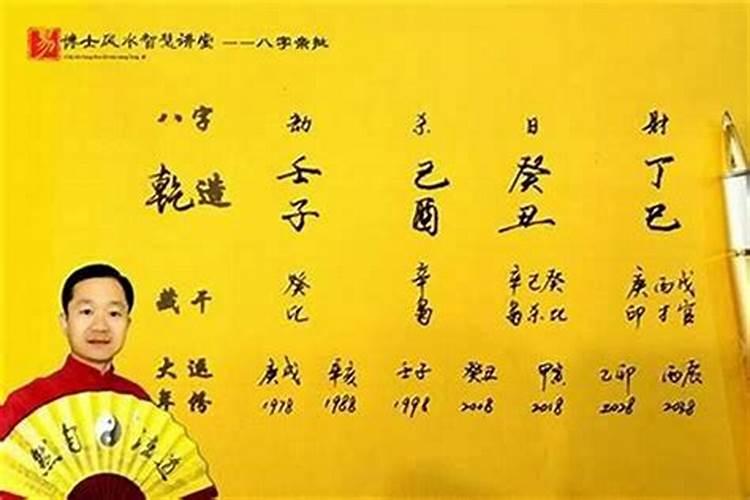 易 博士风水智慧讲堂 ——八字亲批
八字 劫 杀 日 财
乾造 壬 己 癸 丁
子 酉 丑 巳
藏干 癸 辛 辛己癸 庚丙戊
比 枭 枭杀比 印才官
大运 庚戌 辛亥 壬子 癸丑 甲寅 乙卯 丙辰
年份 1978 1988 1998 2008 2018 2028 2038
然自法道